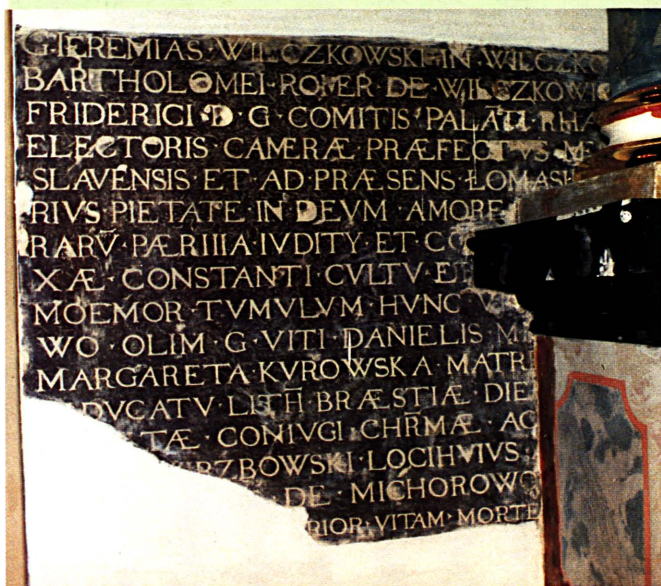 G·IEREMIAS·WILCZKOWSKI·IN·WILCZKO
BARTHOLOMEI·ROMER·DE·WILCZKOWI
FRIDERICI·D·G·COMITIS·PALATI·RHA
ELECTORIS·CAMERÆ·PRÆFECTVS·ME
SLAVENSIS·ET·AD·PRÆSENS·ŁOMAS
RIVS·PIETATE·IN·DEVM·AMORE
RARV̄·PÆRIIIA·IVDITY·ET·CO
XÆ·CONSTANTI·CVLTV·EI
MOEMOR·TVMVLVM·HVNC·V
WO·OLIM·G·VITI·DANIELIS·M
MARGARETA·KVROWSKA·MATRI
DVCATV·LITH̄·BRÆSTIÆ·DIE
TÆ·CONIVGI·CHR̄MÆ·AC
RZBOWSKI·LOCIHVIVS
DE·MICHOROWO
RIOR·VITAM·MORTE